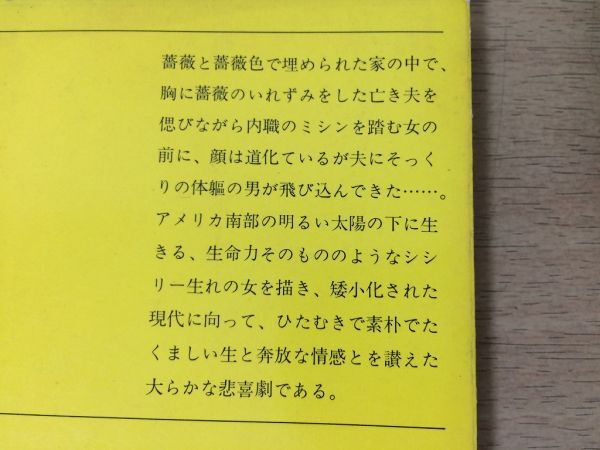 薔薇と薔薇色で埋められた家の中で、
胸に薔薇のいれずみをした亡き夫を
偲びながら内職のミシンを踏む女の
前に、顔は道化ているが夫にそっく
りの体軀の男が飛び込んできた……。
アメリカ南部の明るい太陽の下に生
きる、生命力そのもののようなシシ
リー生れの女を描き、矮小化された
現代に向って、ひたむきで素朴でた
くましい生と奔放な情感とを讃えた
大らかな悲喜劇である。